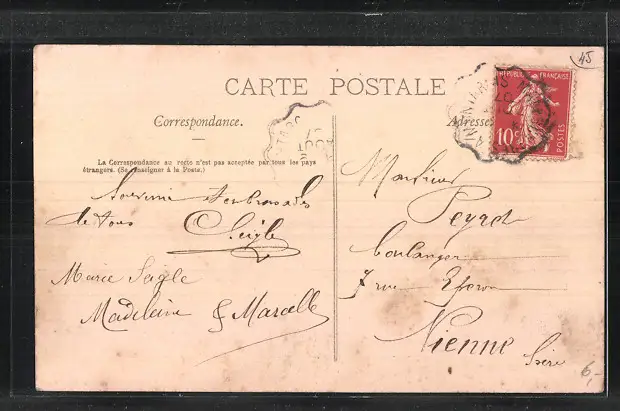 CARTE POSTALE
Correspondance.
Adresse
La Correspondance au recto n'est pas acceptée par tous les pays
étrangers. (Se renseigner à la Poste.)
RÉPUBLIQUE FRANÇAISE
10c
POSTES
45
Souvenir
de tous Seigle
Marie Seigle
Madeleine & Marcelle
Monsieur
Peyret
boulanger
7 rue
Vienne
Isère
6,-